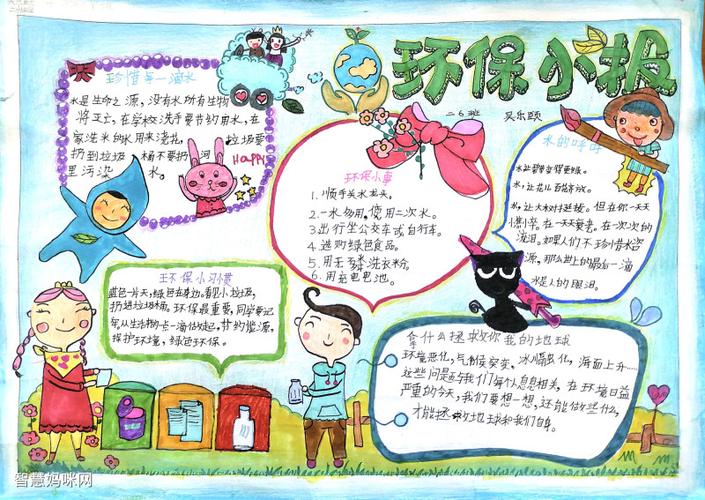 环保小报
二6班
吴乐颐
珍惜每一滴水
水是生命之源，没有水所有生物
将正亡，在学校洗手要节约用水，在
家洗米的水用来浇花。垃圾要
扔到垃圾桶不要扔河
里污染水。
Happy
环保小事
1.顺手关水龙头。
2.一水多用，使用二次水。
3.出行坐公交车或自行车。
4.选购绿色食品。
5.用无磷洗衣粉。
6.用充电电池。
水的呼吁
水，让碧草变得更绿。
水，让花儿百花齐放。
水，让大树才挺拔。但在你一天天
源。那么世上的最后一滴
水是人的眼泪。
环保小习惯
蓝色一片天，绿色在身边。看见小垃圾，
扔进垃圾桶。环保最重要，同学要记
牢。从生活的点滴做起。节约能源。
保护环境，绿色环保。
拿什么拯救你我的地球
环境恶化，气候突变。冰川融化，海面上升……
这些问题与我们每个人息息相关。在环境日益
严重的今天，我们要想一想，还能做些什么，
才能拯救地球和我们自身。
智慧妈咪网